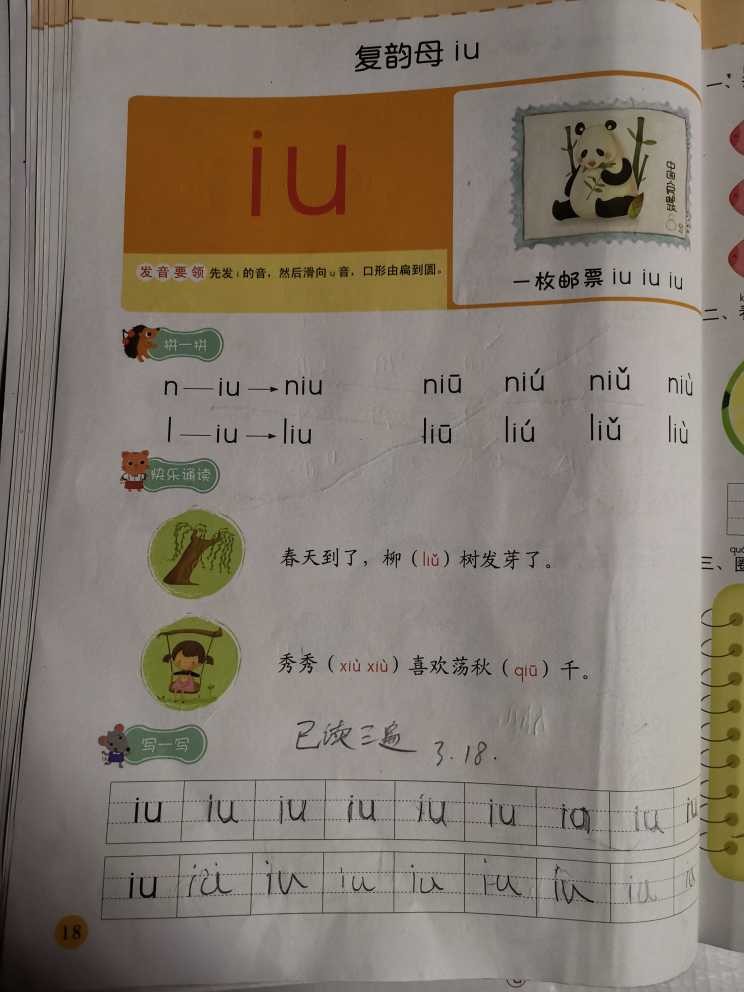 复韵母 iu
iu
中国人民邮政
发音要领 先发i的音，然后滑向u音，口形由扁到圆。
一枚邮票 iu iu iu
拼一拼
n—iu→niu niū niú niǔ niù
l—iu→liu liū liú liǔ liù
快乐诵读
春天到了，柳（liǔ）树发芽了。
秀秀（xiù xiù）喜欢荡秋（qiū）千。
写一写
已读三遍 3.18.
iu iu iu iu iu iu iu iu iu
iu iu iu iu iu iu iu iu iu
18
一、
二、
三、圈